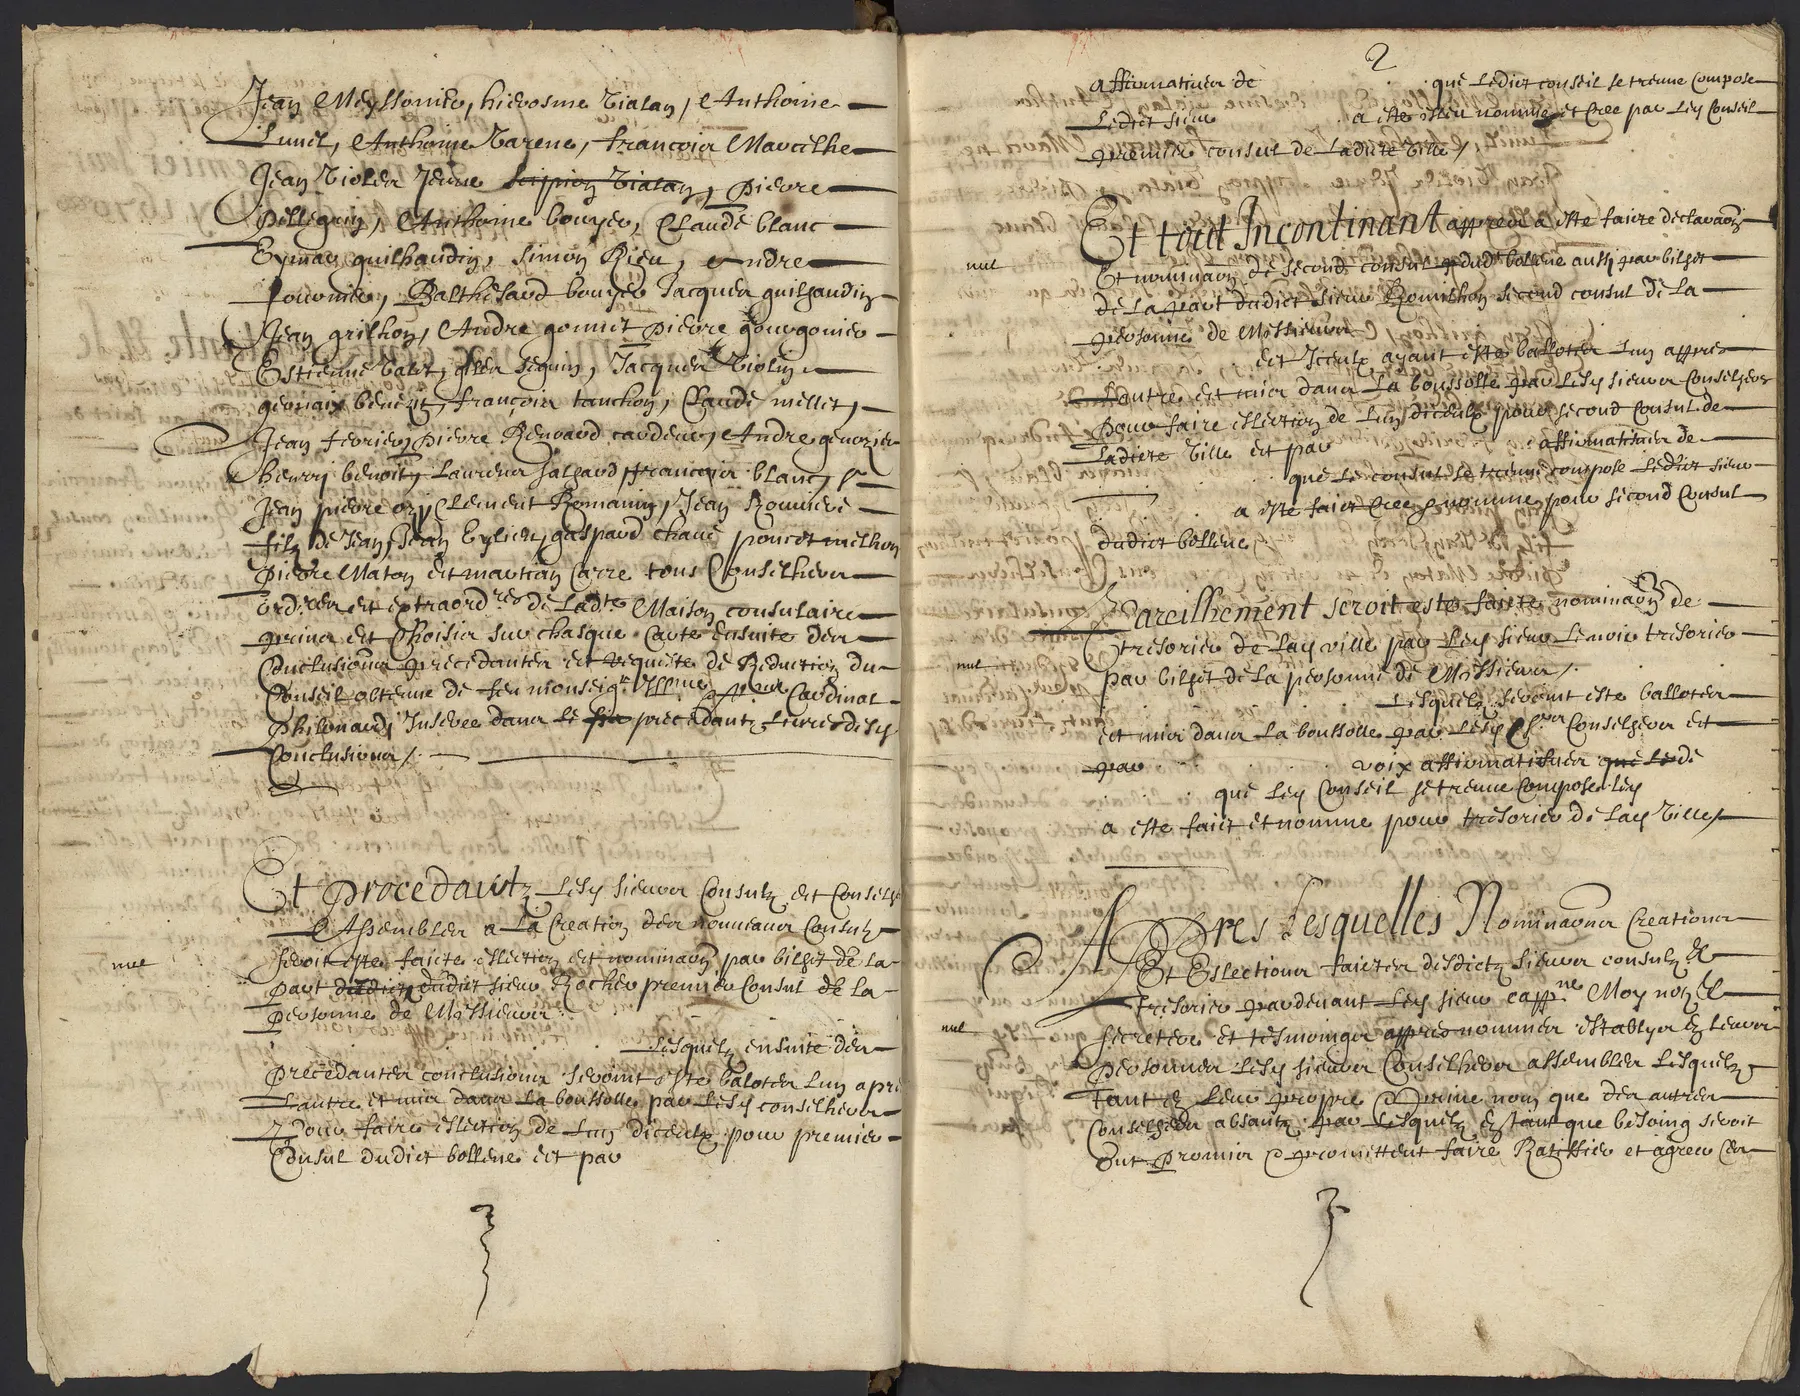 Jean Meyssonier, hierosme Vialan, Anthoine
Lunel, Anthoine Varene, francois Marcelhe
Jean Violen Jeune scipion Vialan, pierre
pellegrin, Anthoine bouyer, Claude blanc
Eymar guilhaudin, simon Rieu, Andre
fournier, Balthesard bouyer Jacques guilhaudin
Jean grilhon, Andre gonnet pierre gourgonier
Estienne Valet, gilen seguin, Jacques Violin
gervaix benoit, françois tauchon, Claude mellet,
Jean fevrier, pierre Renoard cardeur, Andre genozier
henry benoit, Laurens salhard, francois blanc,
Jean pierre ozi, Clement Romanin, Jean Rouviere
filz de Jean, Jean Eylieu, gaspard chave poncet milhon
pierre Maton et martian Carre tous Conselhiers
ord.res et extraord.res de ladte Maison consulaire
prins et Choisis sur chasque Carte ensuite des
Conclusions precedantes et requeste de Reduction du
Conseil obtenue de feu monseigr Illme Cardinal
philonardy Inseree dans le precedant Livre desd
Conclusions /.
Et procedantz Lesd sieurs Consulz et Conselhe
Assembles a La Creation des nouveaux Consulz
nul
seroit este faicte eslection et nominaon par bilhet de la
part dudict sieur Rocher premier Consul de la
personne de Messieurs
Lesquelz ensuite des
precedantes conclusions seroint este balotes lun apre
Lautre et mis dans La boussolle par Lesd conselhers
pour faire eslection de Lun diceulx pour premier
Consul dudict bollene et par
2
affirmatives de que Ledict conseil se treuve compose
Ledict sieur a este esleu nomme et Cree par Led Conseil
premier consul de Ladicte Ville /
Et tout Incontinant appres a este faicte declaraon
nul
Et nominaon de second consul dud bollene aussy par bilhet
de La part dudict sieur Romilhon second consul de La
personne de Messieurs
et Iceulx ayant este ballotes Lun appres
Lautre et mis dans La boussolle par Lesd sieurs Conselhers
pour faire eslection de Lun diceulx pour second Consul de
Ladicte Ville et par affirmatives de
que le consul se treuve compose Ledict sieur
a este faict Cree et nomme pour second Consul
dudict bollene
Pareilhement seroit este faicte nominaon de
tresorier de Lad ville par Led sieur Lenoir tresorier
nul
par bilhet de La personne de Messieurs /.
Lesquelz seroint este ballotes
et mis dans La boussolle par Lesd Conselhers et
par voix affirmatives que Le de
que Led Conseil se treuve Compose Led
a este faict et nomme pour tresorier de Lad Ville /
Apres Lesquelles Nominaons Creations
Et Eslections faictes desdictz sieurs consulz &
Tresorier pardevant Led sieur cappne Moy notre &
nul
secretere et tesmoings appres nommes establys en Leurs
personnes Lesd sieurs Conselhers assembles Lesquelz
Tant en Leur propre & prime nom que des autres
Conselhers absantz par Lesquelz Estant que besoing seroit
ont Promis & promettent faire Ratiffier et agreer Ces